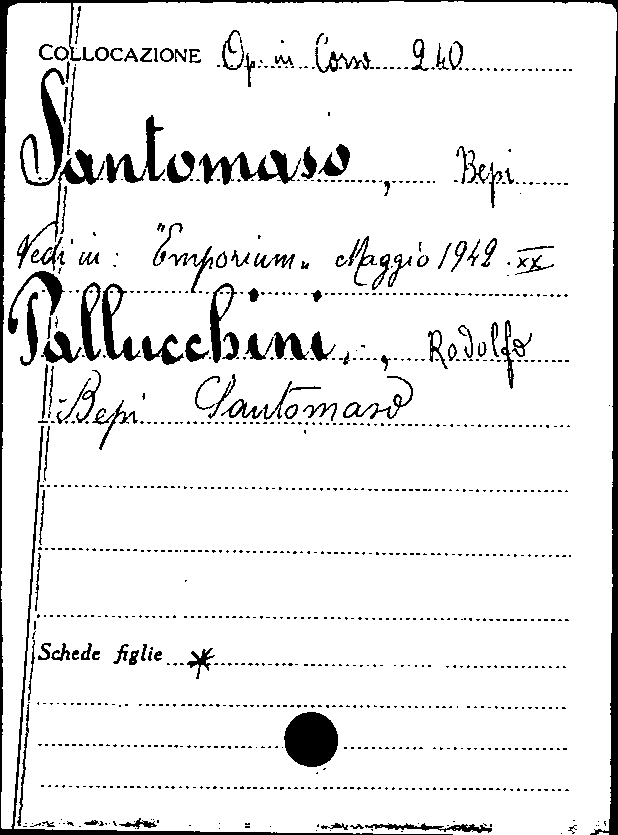 COLLOCAZIONE Op. in Corso 240
Santomaso, Bepi
Vedi in: "Emporium" Maggio 1942. XX
Pallucchini, Rodolfo
Bepi Santomaso
Schede figlie *